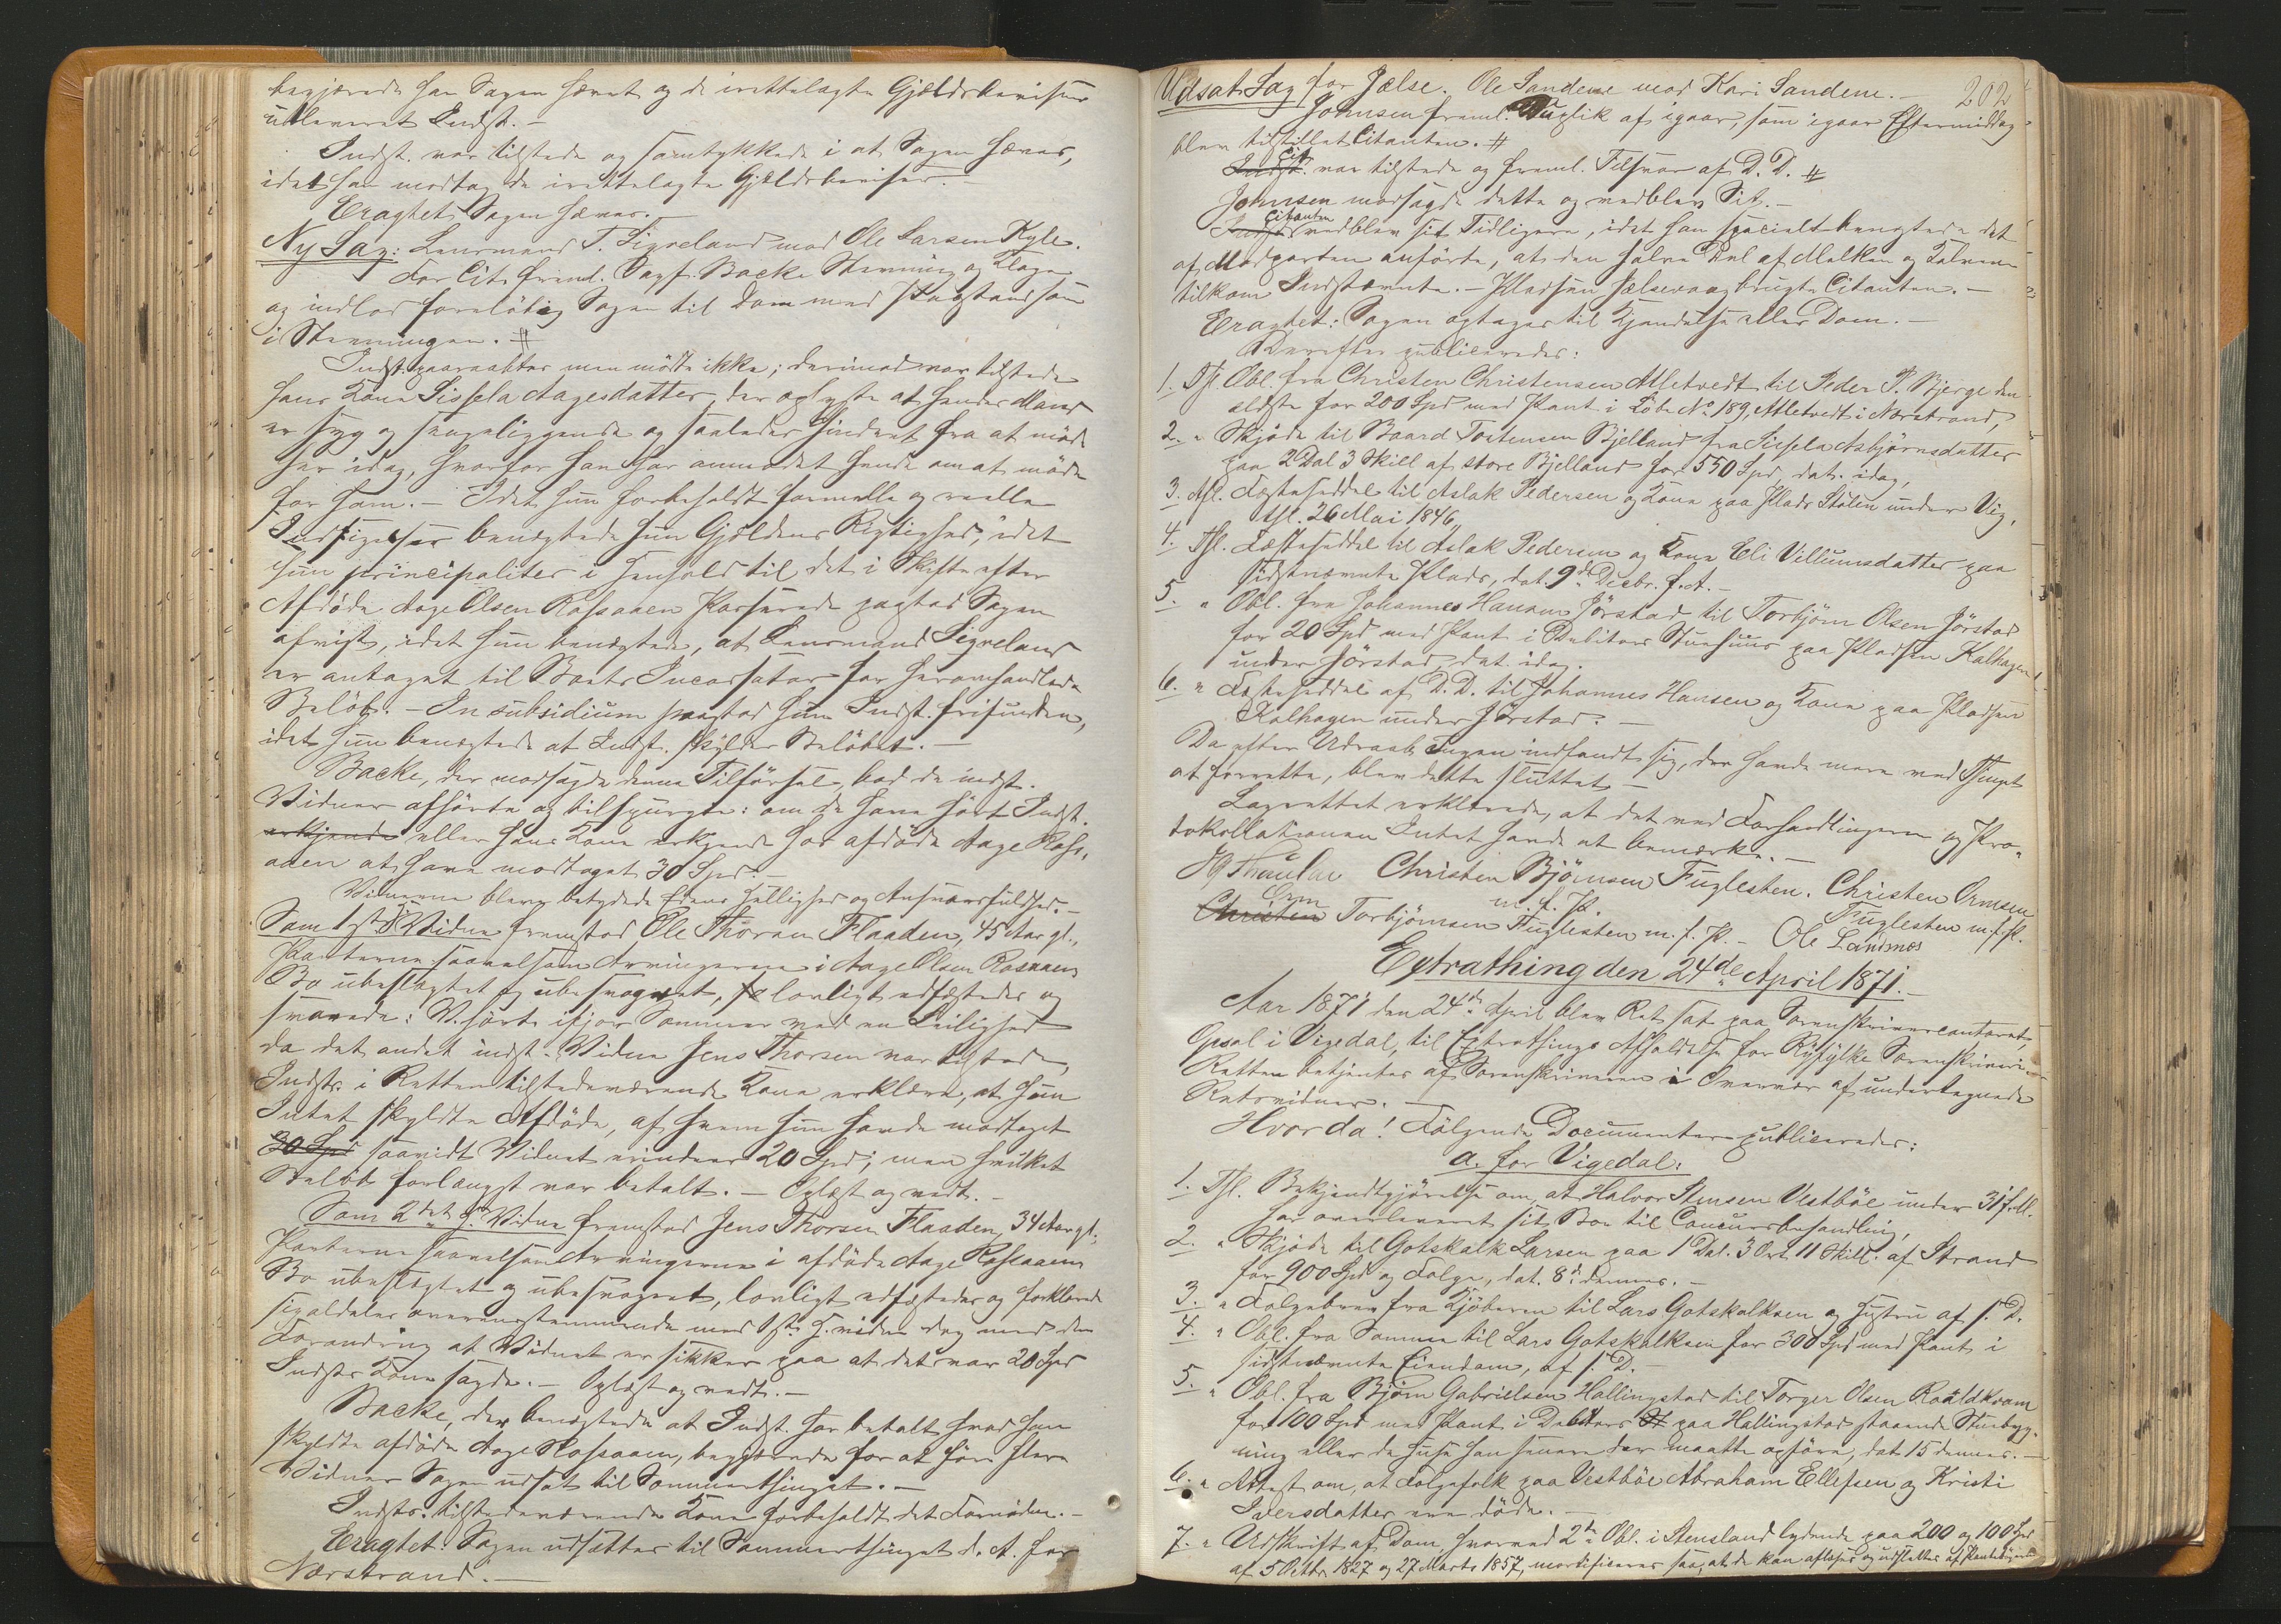 begjærede han Sagen hævet og de irettelagte Gjældsbeviser
udleveret Indst. –
Indst. var tilstede og samtykkede i at Sagen hæves,
idet han modtog de irettelagte Gjeldsbeviser. –
Eragtet: Sagen hæves. –
Ny Sag: Lensmand T. Sigveland mod Ole Larsen Kyle.
For Cit. freml. Sagf. Backe Stevning og Klage
og indlod foreløbig Sagen til Dom med Paastand som
i Stevningen. #
Indst. paaraabtes men mødte ikke; derimod var tilstede
hans Kone Sissela Aagesdatter, der oplyste at hendes Mand
er syg og sengeliggende og saaledes hindret fra at møde
her idag, hvorfor han har anmodet hende om at møde
for ham. – Idet hun forbeholdt formelle og reelle
Indsigelser benægtede hun Gjældens Rigtighed, idet
hun principaliter i Henhold til det i Skifte efter
Afdøde Aage Olsen Rossaaen Passerede paastod Sagen
afvist, idet hun benægtede, at Lensmand Sigveland
er antaget til Boets Incassator for heromhandlede
Beløb. – In subsidium paastod hun Indst. frifunden,
idet hun benægtede at Indst. skylder Beløbet. –
Backe, der modsagde denne Tilførsel, bad de indst.
Vidner afhørte og tilspurgte: om de have hørt Indst.
erkjende eller hans Kone erkjende for afdøde Aage Ross-
aaen at have modtaget 30 Spd. –
Vidnerne bleve betydede Edens Hellighed og Ansvarsfuldhed. –
Som 1ste Vidne fremstod Ole Thorsen Flaaden, 45 Aar gl.,
Parterne saavelsom Arvingerne i Aage Olsen Rosaaens
Bo ubeslægtet og ubesvogret, lovligt edfæstedes og
svarede: V. hørte ifjor Sommer ved en Leilighed
da det andet indst. Vidne Jens Thorsen var tilstede,
Indsts. i Retten tilstedeværende Kone erklære, at hun
Intet skyldte Afdøde, af hvem hun havde modtaget
30 Spd saavidt Vidnet erindrer 20 Spd; men hvilket
Beløb forlængst var betalt. – Oplæst og vedt. –
Som 2det Vidne fremstod Jens Thorsen Flaaden, 34 Aar gl.,
Parterne saavelsom Arvingerne i afdøde Aage Rossaaens
Bo ubeslægtet og ubesvogret, lovligt edfæstedes og forklarede
sigaldeles overensstemmende med 1ste Vidne dog med den
Forandring at Vidnet er sikker paa at det var 20 Spd
Indsts Kone sagde. – Oplæst og vedt. –
Backe, der benægtede at Indst. har betalt hvad han
skyldte afdøde Aage Rossaaen, begjærede for at føre flere
Vidner Sagen udsat til Sommerthinget. –
Indsts. tilstedeværende Kone forbeholdt det Fornødne. –
Eragtet: Sagen udsættes til Sommerthinget d. A. for
Nærstrand. –
202
Udsat Sag for Jælse. Ole Sandene mod Kari Sandene. –
Johnsen freml. Duplik af igaar, som igaar Eftermiddag
blev tilstillet Citanten. #
Cit.
Indst. var tilstede og freml. Tilsvar af D. D. #
Johnsen modsagde dette og vedblev Sit. –
Citanten
Indst. vedblev sit Tidligere, idet han specielt benægtede det
af Modparten anførte, at den halve Del af Melken og Kalven
tilkom Indstevnte. – Pladsen brugte Citanten. –
Eragtet: Sagen optages til Kjendelse eller Dom. –
Derefter publiceredes:
1. Thl. Obl. fra Christen Christensen Alletvedt til Peder P. Bjerge den
ældste for 200 Spd med Pant i Løbe No. 189, Alletvedt i Nærstrand,
2. " Skjøde til Baard Tostensen Bjelland fra Sissela Asbjørnsdatter
paa 2 Dal 3 Skill af store Bjelland for 550 Spd, dat. idag,
3. Afl. Fæsteseddel til Aslak Pedersen og Kone paa Plads Stølen under Vig,
thl. 26 Mai 1846,
4. Thl. Fæsteseddel til Aslak Pedersen og Kone Eli Villumsdatter paa
sidstnævnte Plads, dat. 9de Decbr. f. A. –
5. " Obl. fra Johannes Hansen Jørstad til Torbjørn Olsen Jørstad
for 20 Spd med Pant i Debitors Stuehuus paa Pladsen Kalhagen
under Jørstad, dat. idag.
6. " Fæsteseddel af D. D. til Johannes Hansen og Kone paa Pladsen
Kalhagen under Jørstad. –
Da efter Udraab Ingen indfandt sig, der havde mere ved Thinget
at forrette, blev dette sluttet –
Lagrettet erklærede, at det ved Forhandlingerne og Pro-
tokollationen Intet havde at bemærke. –
Christen Bjørnsen Fuglesten. Christen Ormsen
m. f. P. Fuglesten m. f. P.
Orm
Christen Torbjørnsen Fuglesten m. f. P. – Ole Landmos
Extrathing den 24de April 1871. –
Aar 1871 den 24de April blev Ret sat paa Sorenskrivercontoret,
Opsal i Vigedal, til Extrathings Afholdelse for Ryfylke Sorenskriveri. –
Retten betjentes af Sorenskriveren i Overvær af undertegnede
Retsvidner. –
Hvorda! Følgende Documenter publiceredes:
a. for Vigedal:
1. Thl. Bekjendtgjørelse om, at Halvor Stensen Vestbøe under 31 f. M.
har overleveret sit Bo til Concursbehandling,
2. " Skjøde til Gotskalk Larsen paa 1 Dal. 3 Ort. 11 Skill. af Strand
for 900 Spd og Folge, dat. 8de dennes. –
3. " Folgebrev fra Kjøberen til Lars Gotskalksen og Hustru af s. D.
4. " Obl. fra Samme til Lars Gotskalksen for 300 Spd med Pant i
sidstnævnte Eiendom, af s. D. –
5. " Obl. fra Bjørn Gabrielsen Hallingstad til Torger Olsen Roaldkvam
for 100 Spd med Pant i Debitors St paa Hallingstad staaende Stuebyg-
ning eller de Huse han senere der maatte opføre, dat 15 dennes. –
6. " Attest om, at Folgefolk paa Vestbøe Abraham Ellefsen og Kristi
Iversdatter ere døde. –
7. " Udskrift af Dom, hvorved 2de Obl. i Stensland lydende paa 200 og 100 Spd
af 5 Octbr. 1827 og 27 Marts 1857, mortificeres saa, at de kan aflæses og udslettes af Pantebøgerne